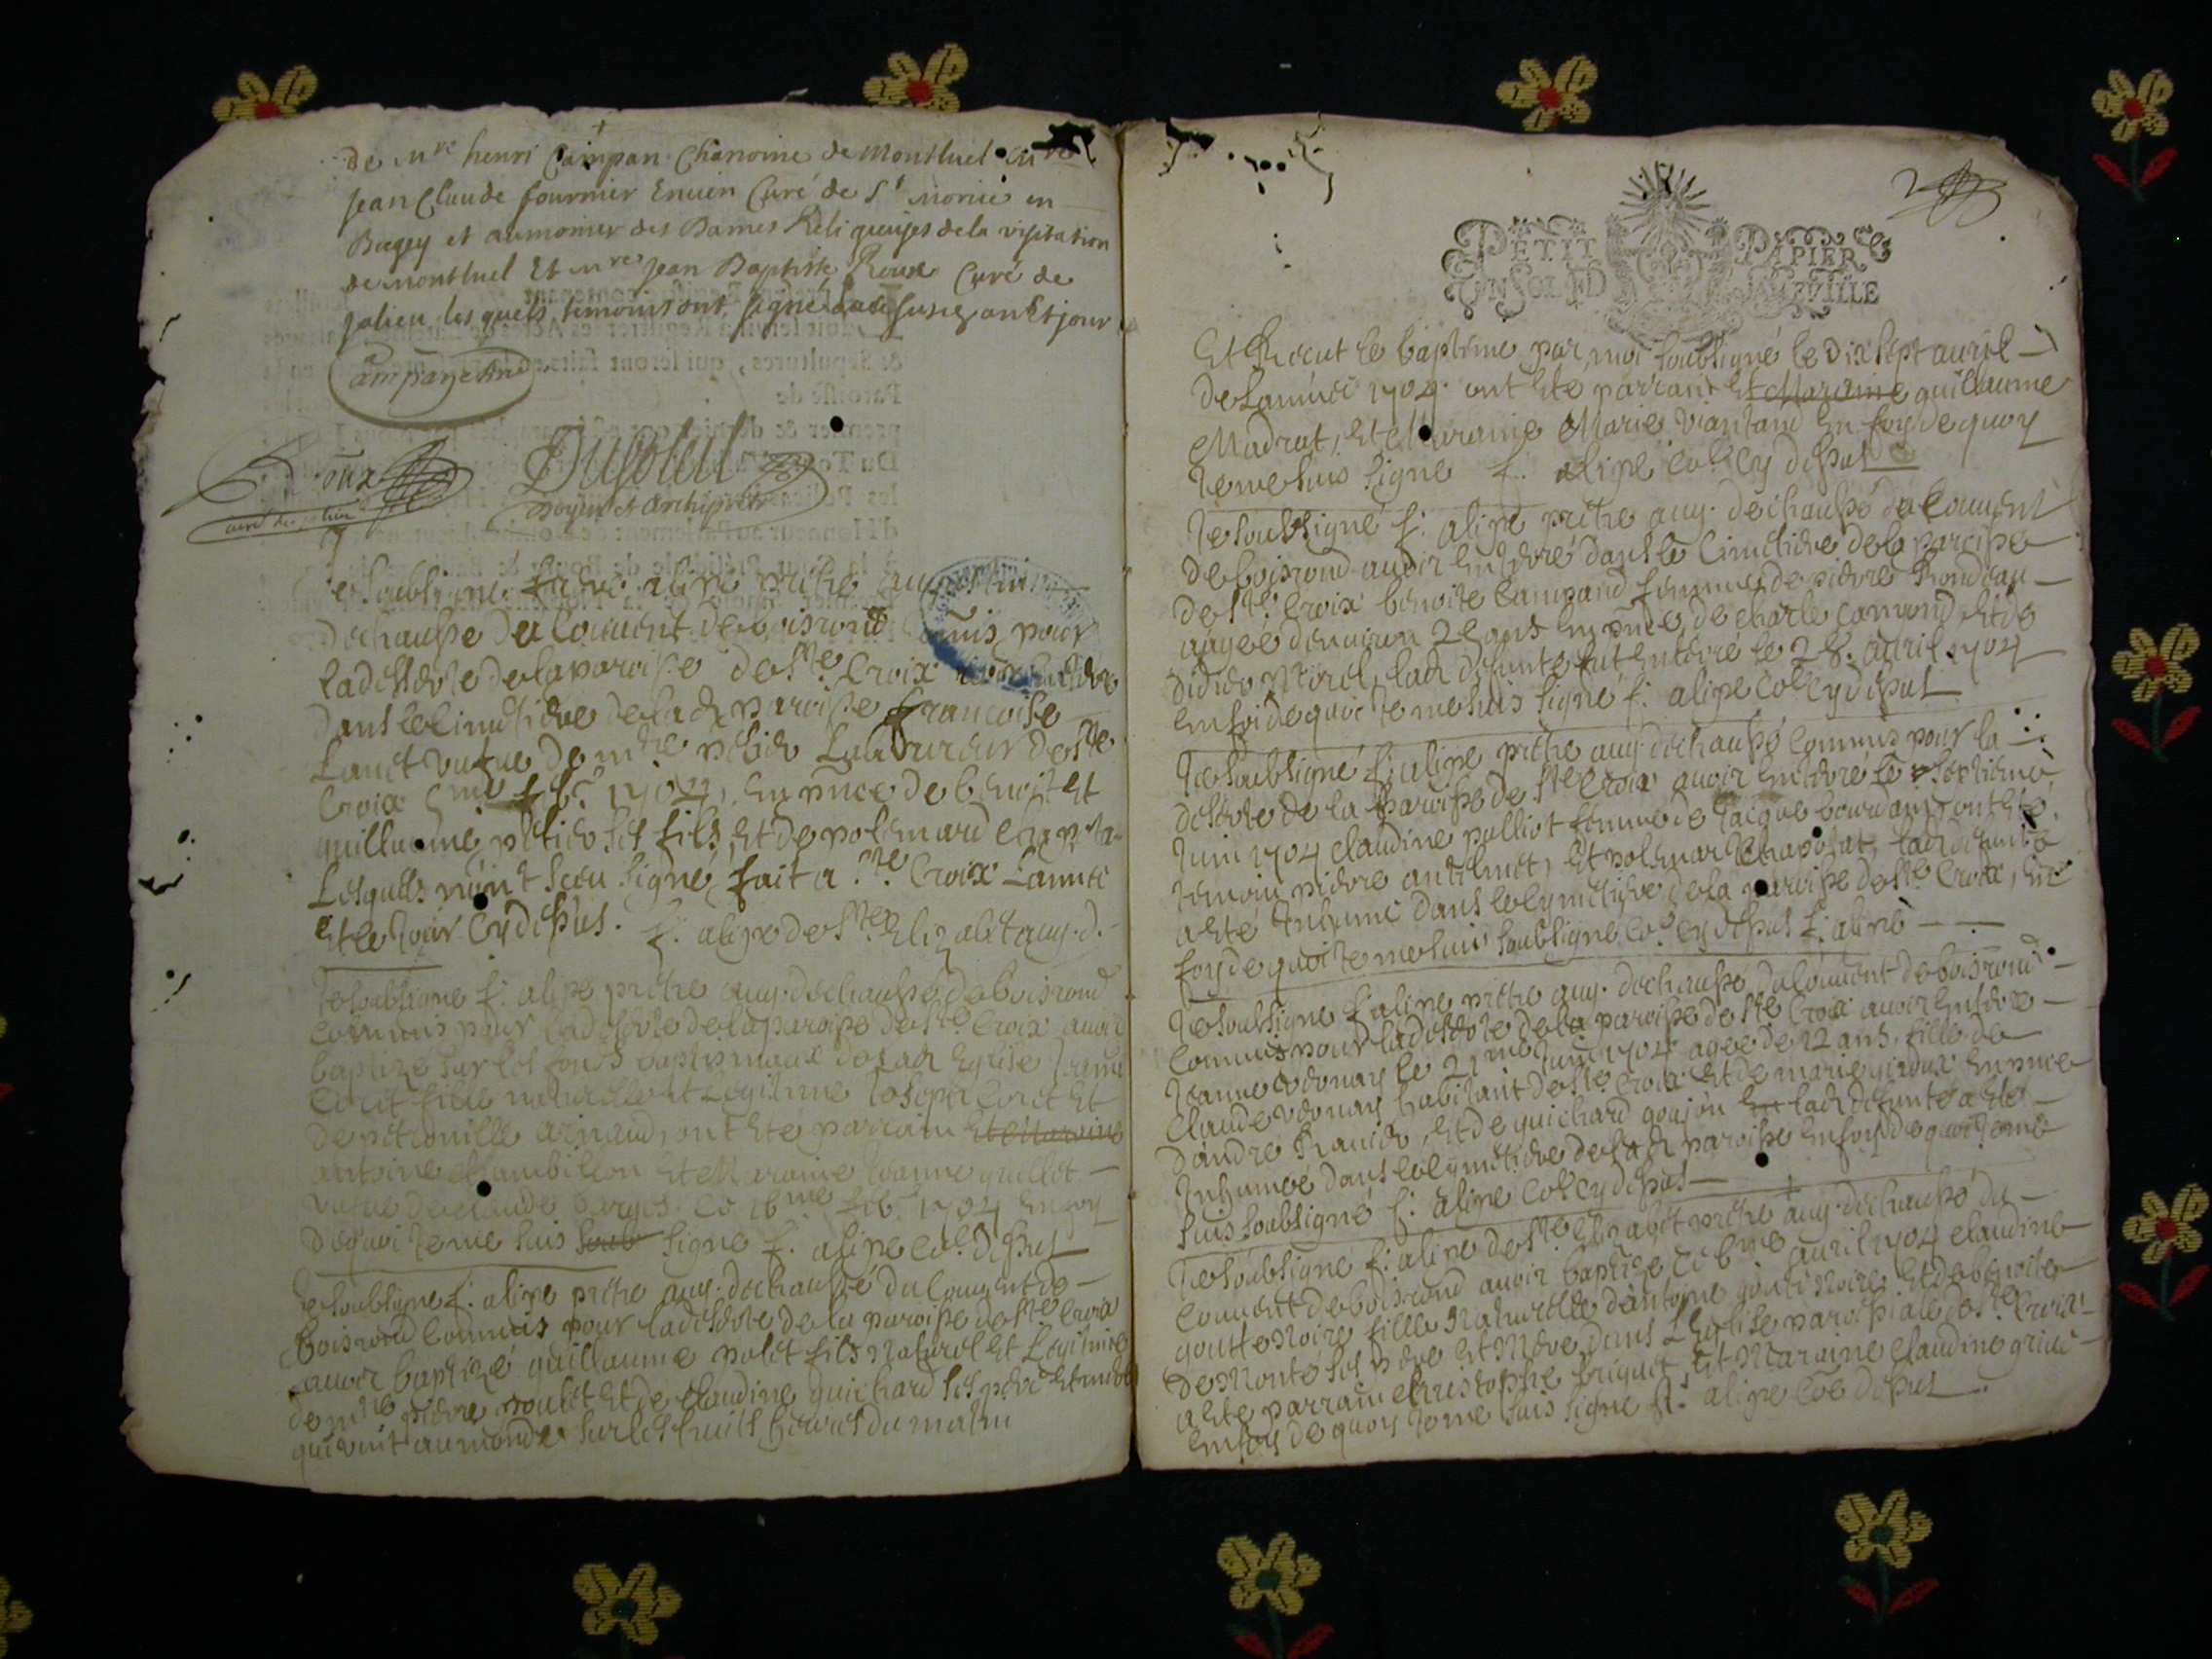 de Mre henri Campan Chanoine de Montluel
Jean Claude fournier Curé de St Morice en
Bugey et aumonier des Dames Religieuses de la visitation
de Montluel Et Mre Jean Baptiste Roux Curé de
jalieu les quels temoins ont signé an Et jour
Dusoleil
Roux
doyen et archiprêtre
curé de jalieu
Je soubsigné frere alipe prêtre augustin
dechausse du Couvent de boisrond Comis pour
la deserte de la paroisse de Ste Croix
dans le cimetiere de la d paroisse francoise
vefve de mtre Laboureur de Ste
Croix 1704, en pnce de benoit et
guillaume ses fils, Et de polemard
Lesquels n'ont sceu signé, fait a Ste Croix L'année
Et le Jour Cy dessus. f. alipe de Ste Elizabet aug. d.
Je soubsigne f. alipe prêtre aug. dechausse de boisrond
Commis pour la deserte de la paroisse de Ste Croix avoir
baptize sur les fons baptismaux de lad Eglise
fille naturelle et Legitime Joseph Et
de petronille arnaud, ont Eté parrain Et Maraine
antoine chambillon Et Maraine Jeanne guillet
vefve de claude le 16me feb. 1704 En foy
dequoi Je me suis soub signe f. alipe Coe. dessus
Je soubsigne f. alipe prêtre aug. dechaussé du Couvent de
boisrond Commis pour la deserte de la paroisse de Ste Croix
avoir baptizé guillaume polet fils Naturel Et Legitime
de mtre pierre poulet Et de claudine guichard ses pere Et mere
qui vint au monde sur les huits heures du matin
2
PETIT PAPIER
UN SOL LED LA FEUILLE
Et Recut le baptême par moi soubsigné le Dix sept avril
de L'année 1704. ont Ete parrain Et Maraine guillaume
Madrat, Et Maraine Marie En foy de quoy
Je me suis signe f. alipe Coe. cy dessus
Je soubsigné f. alipe prêtre aug. dechaussé du Couvent
de boisrond avoir Enterré dans le Cimetiere de la paroisse
de Ste Croix benoite femme de pierre Rondeau
aagée d'environ 28 ans En pnce, de charle Et de
didier Morel, lad defunte fut Enterré le 28. avril 1704
En foi de quoi Je me suis signe f. alipe Coe. cy dessus
Je soubsigné f. alipe prêtre aug. dechaussé Commis pour la
deserte de la paroisse de Ste Croix avoir Enterré le septieme
Juin 1704 claudine polliot femme de Jacque ont Eté
temoin pierre antelmet, Et polemar lad defunte
a Eté Inhumé dans le cymetiere de la paroisse de Ste Croix, En
foy de quoi Je me suis soubsigne Coe. cy dessus f. alipe
Je soubsigne f. alipe prêtre aug. dechausse du Couvent de boisrond
Commis pour la deserte de la paroisse de Ste Croix avoir Enterre
Jeanne le 21me Juin 1704 agee de 12 ans fille de
Claude habitant de Ste Croix Et de marie En pnce
d'andre Et de guichard goujon Et lad defunte a Ete
Inhumée dans le cymetiere de lad paroisse En foy de quoi Je me
suis soubsigné f. alipe Coe. cy dessus
Je soubsigné f. alipe de Ste Elizabet prêtre aug. dechaussé du
Couvent de boisrond avoir baptize Ce 6me avril 1704 claudine
goutte Noire fille Naturelle d'antoine goute Noire Et de benoite
de Monte ses pere Et Mere dans L'Eglise paroissiale de Ste Croix
a Ete parrain christophe briguet, Et Maraine claudine
En foy de quoy Je me suis signe f. alipe Coe dessus